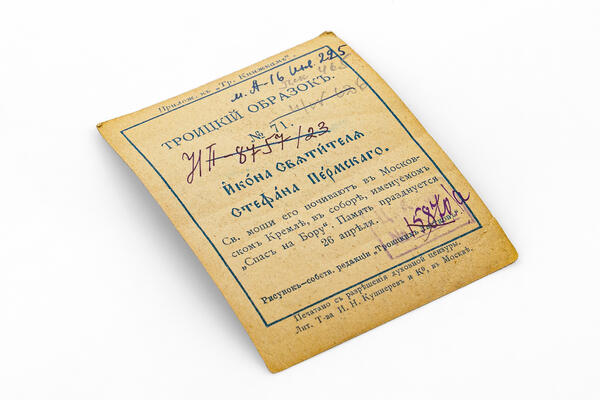 Прилож. къ „Тр. Книжкамъ“.
м. А-16 инв. 225
ТРОИЦКІЙ ОБРАЗОКЪ.
№ 71.
НП-8757/23
Ико́на Свѧти́телѧ
Стефа́на Пермскагѡ.
Св. мощи его почиваютъ въ Москов-
скомъ Кремлѣ, въ соборѣ, именуемомъ
„Спасъ на Бору“. Память празднуется
26 апрѣля.
15870
Рисунокъ-собств. редакціи „Троицкихъ
Печатано съ разрѣшенія духовной цензуры.
Лит. Т-ва И. Н. Кушнеревъ и Ко, въ Москвѣ.